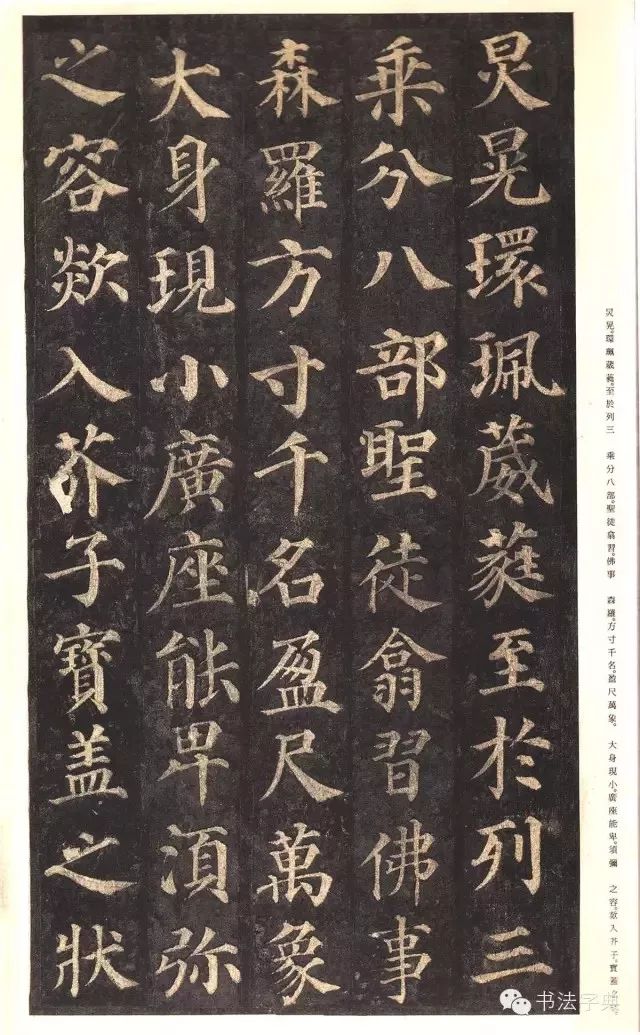 炅晃環珮葳蕤至於列三
乘分八部聖徒翕習佛事
森羅方寸千名盈尺萬象
大身現小廣座能卑湏弥
之容欻入芥子寶盖之狀
炅晃。環珮葳蕤。至於列三　乘分八部。聖徒翕習。佛事　森羅。方寸千名。盈尺萬象。　大身現小。廣座能卑。須彌　之容。欻入芥子。寶蓋之狀。
书法字典